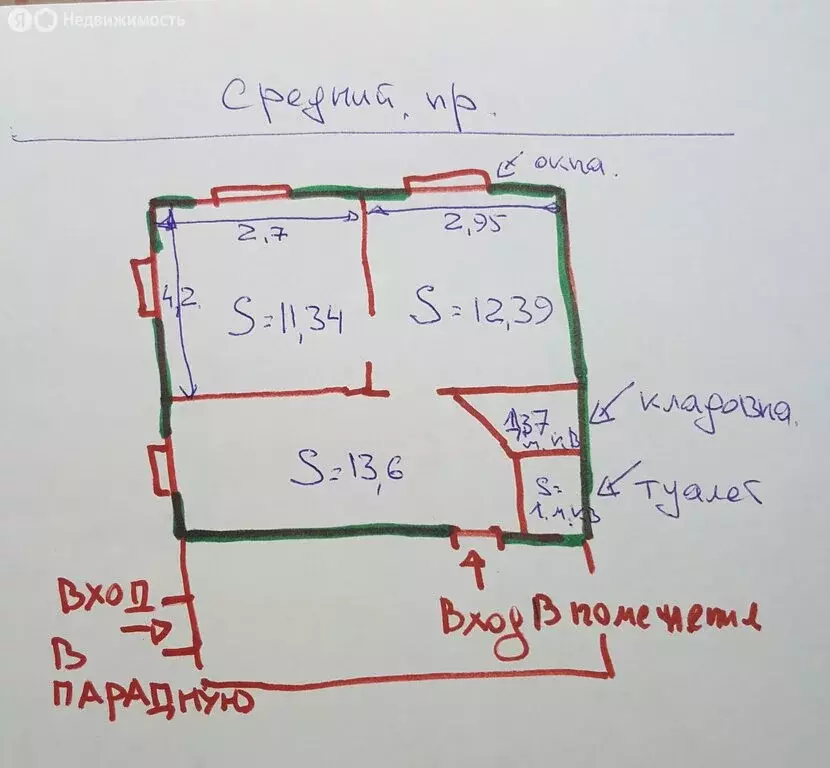 Я Недвижимость
Средний пр.
окна.
2,7
2,95
4,2.
S=11,34
S=12,39
кладовка.
1,37
м.кв
S=13,6
туалет
S=
1.м.кв
Вход
В
парадную
Вход в помещение